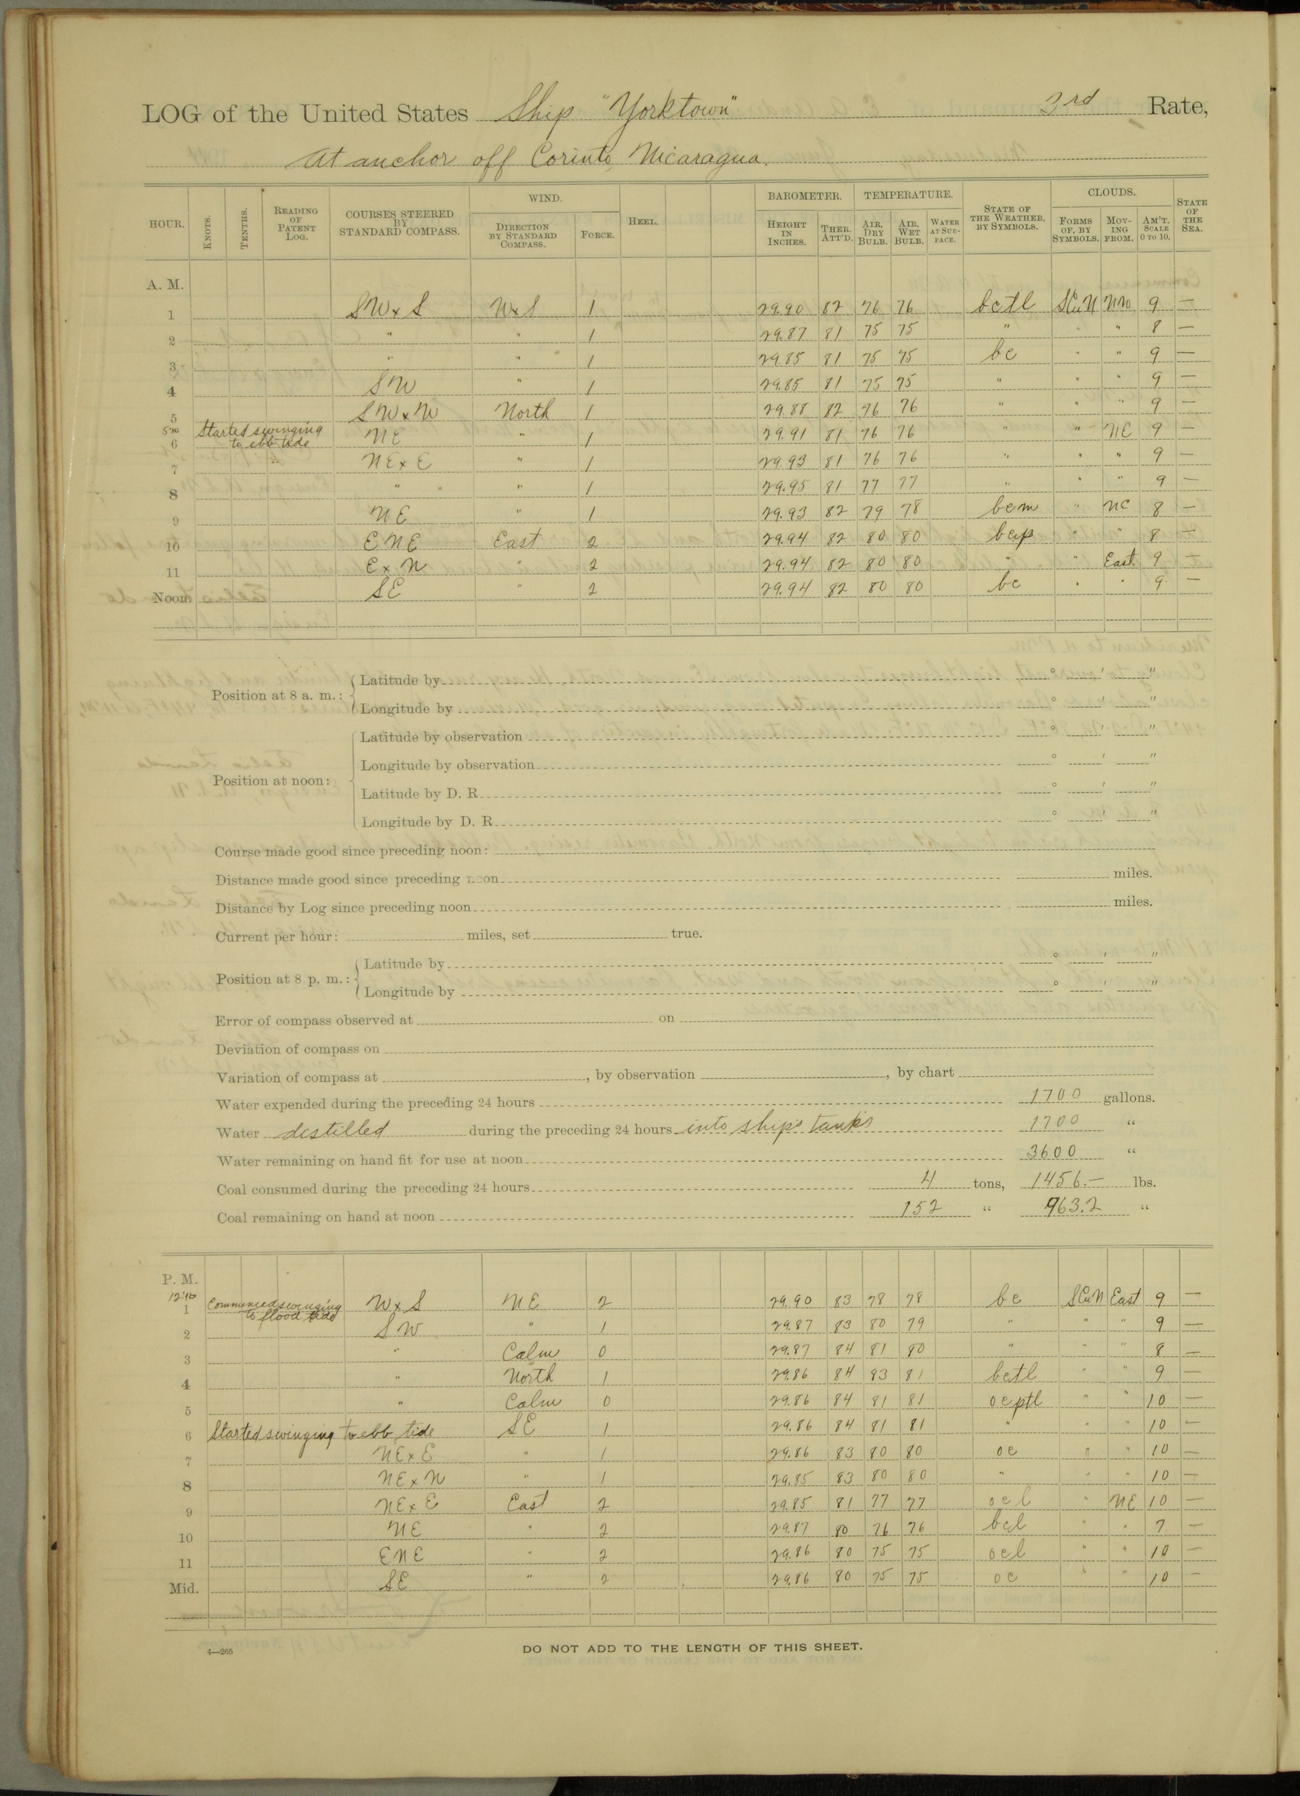 LOG of the United States Ship "Yorktown" 3rd Rate,
At anchor off Corinto, Nicaragua.
HOUR. KNOTS. TENTHS. READING OF PATENT LOG. COURSES STEERED BY STANDARD COMPASS. WIND. DIRECTION BY STANDARD COMPASS. FORCE. HEEL. BAROMETER. HEIGHT IN INCHES. THER. ATT'D. TEMPERATURE. AIR, DRY BULB. AIR, WET BULB. WATER AT SURFACE. STATE OF THE WEATHER, BY SYMBOLS. CLOUDS. FORMS OF, BY SYMBOLS. MOVING FROM. AM'T. SCALE 0 TO 10. STATE OF THE SEA.
A. M.
1 SW x S WxS 1 29.90 82 76 76 bctl SCuN NW 9 —
2 " " 1 29.87 81 75 75 " " " 8 —
3 " " 1 29.85 81 75 75 bc " " 9 —
4 SW " 1 29.85 81 75 75 " " " 9 —
5 SW x W North 1 29.88 82 76 76 " " " 9 —
6 Started swinging to ebb tide NE " 1 29.91 81 76 76 " " NE 9 —
7 NE x E " 1 29.93 81 76 76 " " " 9 —
8 " " 1 29.95 81 77 77 " " " 9 —
9 NE " 1 29.93 82 79 78 bcm " NE 8 —
10 ENE East 2 29.94 82 80 80 bcp " " 8 —
11 E x N " 2 29.94 82 80 80 " " East 9 —
Noon SE " 2 29.94 82 80 80 bc " " 9 —
Position at 8 a. m.: Latitude by ° ' "
Longitude by ° ' "
Position at noon: Latitude by observation ° ' "
Longitude by observation ° ' "
Latitude by D. R. ° ' "
Longitude by D. R. ° ' "
Course made good since preceding noon:
Distance made good since preceding noon miles.
Distance by Log since preceding noon miles.
Current per hour: miles, set true.
Position at 8 p. m.: Latitude by ° ' "
Longitude by ° ' "
Error of compass observed at on
Deviation of compass on
Variation of compass at , by observation , by chart
Water expended during the preceding 24 hours 1700 gallons.
Water distilled during the preceding 24 hours into ship's tanks 1700 "
Water remaining on hand fit for use at noon 3600 "
Coal consumed during the preceding 24 hours 4 tons, 1456.— lbs.
Coal remaining on hand at noon 152 " 963.2 "
P. M.
12:10
1 Commenced swinging to flood tide W x S NE 2 29.90 83 78 78 bc SCuN East 9 —
2 SW " 1 29.87 83 80 79 " " " 9 —
3 " Calm 0 29.87 84 81 80 " " " 8 —
4 " North 1 29.86 84 83 81 bctl " " 9 —
5 " Calm 0 29.86 84 81 81 ocptl " " 10 —
6 Started swinging to ebb tide SE 1 29.86 84 81 81 " " " 10 —
7 NE x E " 1 29.86 83 80 80 oc " " 10 —
8 NE x N " 1 29.85 83 80 80 " " " 10 —
9 NE x E East 2 29.85 81 77 77 ocl " NE 10 —
10 NE " 2 29.87 80 76 76 bcl " " 7 —
11 ENE " 2 29.86 80 75 75 ocl " " 10 —
Mid. SE " 2 29.86 80 75 75 oc " " 10 —
4—265
DO NOT ADD TO THE LENGTH OF THIS SHEET.